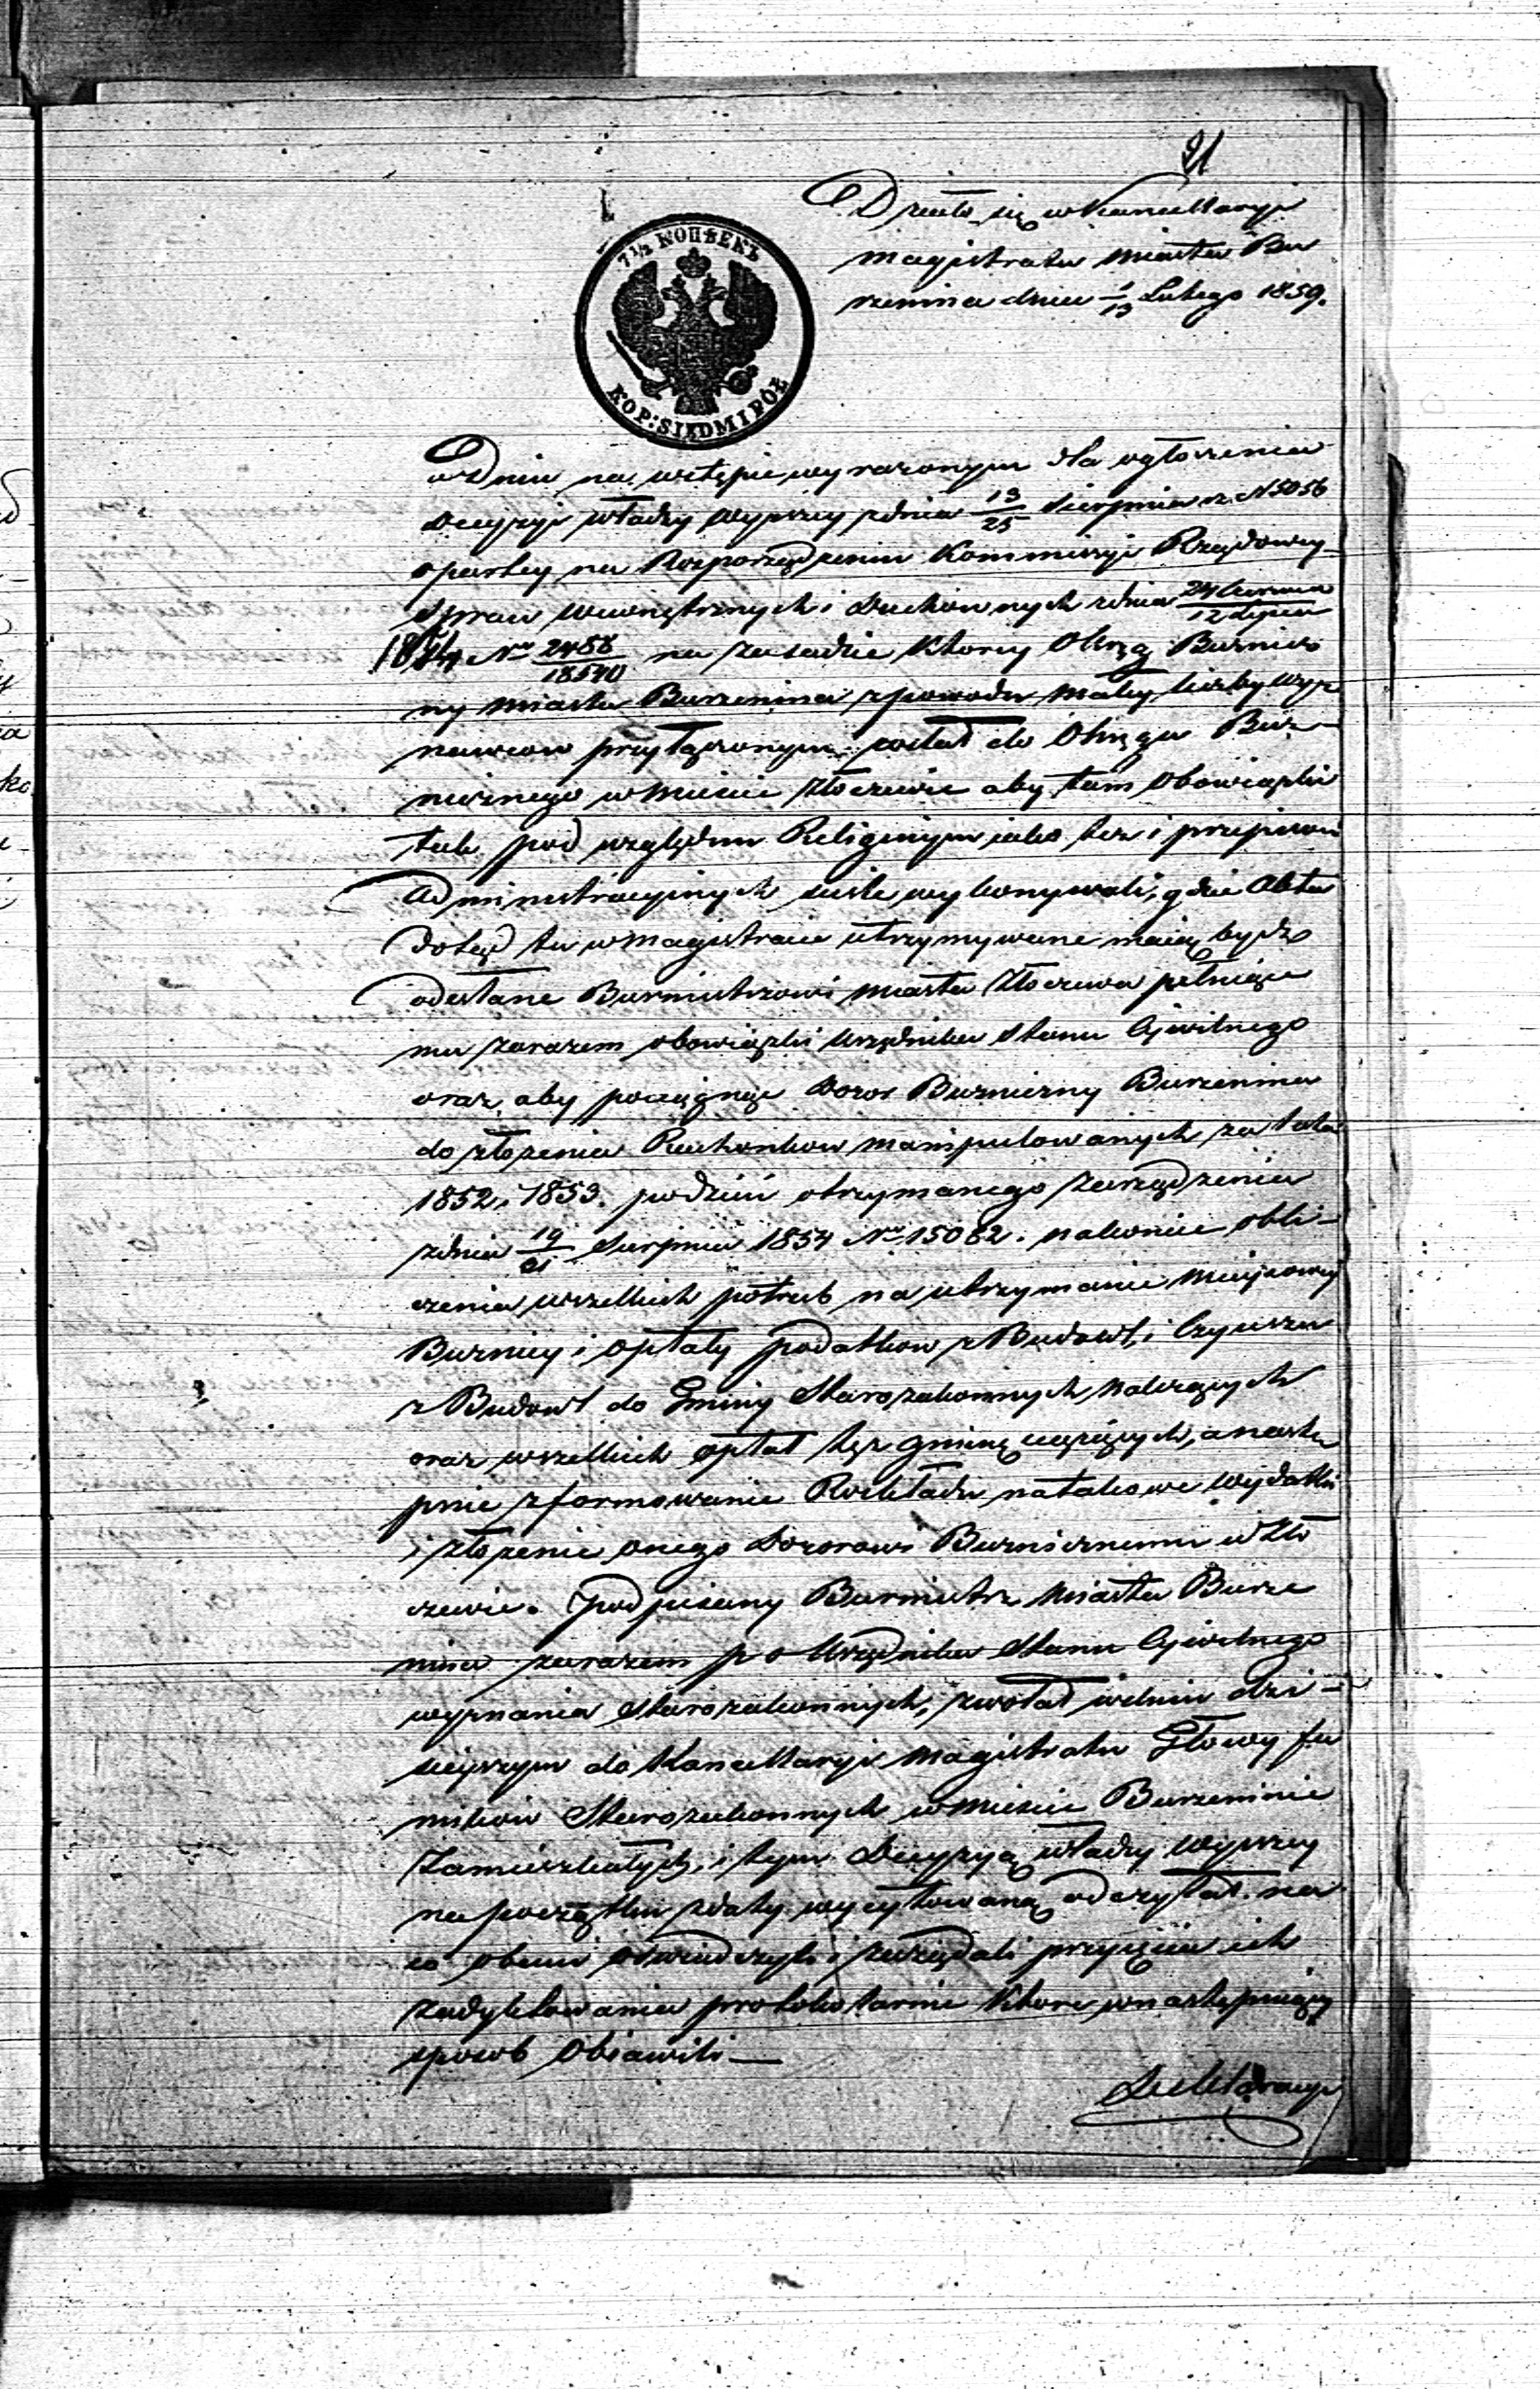 21
Działo się w Kancellaryi
Magistratu Miasta Bu
rzenina dnia 1/13 Lutego 1859.
7 1/2 КОПѢЕКЪ
KOP: SIEDM I PÓŁ
W Dniu na wstępie wyrazonym dla ogłoszenia
Decyzyi władzy wyzszey z dnia 13/25 Sierpnia r. N 5056
opartey na Rozporządzeniu Kommissyi Rządowey
Spraw Wewnętrznych i Duchownych z dnia 24 Czerwca/12 Lipca
1854 Nro 2458/18540 na zasadzie ktorey Okrąg Bużnicz
ny miasta Burzenina z powodu małey liczby wyz
nawcow przyłączonym został do Okręgu Buż-
nicznego w Mieście Złoczewie aby tam Obowiązki
tak pod względem Religinym iako tez i przepisow
Administracyinych scisle wykonywali, gdzie Akta
dotąd tu w Magistracie utrzymywane maią bydz
odesłane Burmistrzowi Miasta Złoczewa pełniące
mu zarazem obowiązki Urzędnika Stanu Cywilnego
oraz aby pociągnąć Dozor Bużniczny Burzenina
do złozenia Rachonkow manipulowanych za lata
1852 i 1853. podzień otrzymanego zarządzenia
z dnia 19/21 Sierpnia 1854 Nro 15082. nakoniec obli-
czenia wszelkich potrzeb na utrzymanie mieyscowey
Bużnicy i opłaty podatkow z Budowl, i Czynszu
z Budowl do Gminy Starozakonnych nalezących
oraz wszelkich opłat tęz gminę ciążących, a nastę
pnie zformowanie Rozkładu na takowe wydatki
i złozenie onego Dozorowi Bużnicznemu w Zło
czewie. Podpisany Burmistrz Miasta Burze
nina zarazem p o Urzędnika Stanu Cywilnego
wyznania Starozakonnych, zwołał w dniu dzi-
sieyszym do Kancellaryi Magistratu Głowy fa
miliow Starozakonnych w Mieście Burzeninie
Zamieszkałych, i tym Decyzyą władzy wyzszey
na początku z daty wycytowaną odczytał. na
co obecni oswiadczyli i zarządali przyięcia ich
zadyktowania protokolarnie ktore w następuiący
sposob Obiawili —
Deklaracyi